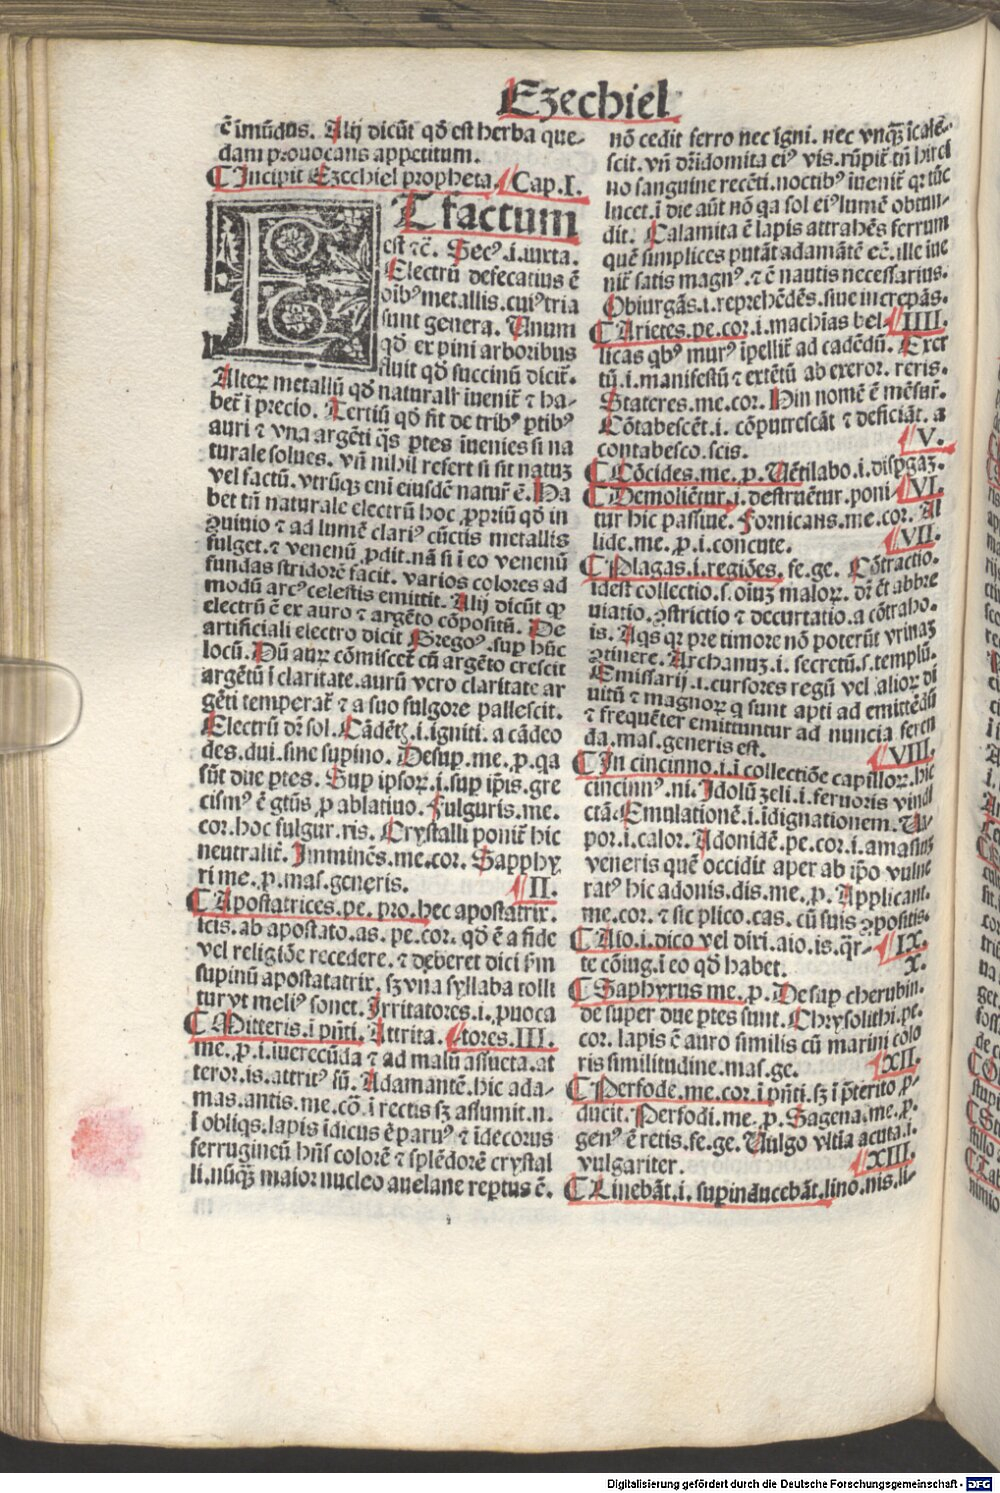 Ezechiel
ē imūdus. Alij dicūt qđ est herba que-
dam prouocans appetitum.
¶ Incipit Ezechiel propheta. Cap. I.
ET factum
est ⁊c̄. Secꝰ.i.iuxta.
Electrū defecatius ē
oībꝰ metallis.cuiꝰ tria
sunt genera. Unum
qđ ex pini arboribus
fluit qđ succinū dicit̄.
Alteꝝ metallū qđ naturalr̄ inenit̄ ⁊ ha-
bet̄ ī precio. Tertiū qđ fit de tribꝰ ꝑtibꝰ
auri ⁊ vna argēti q̄s ꝑtes inuenies si na
turale solues. vn̄ nihil refert si sit natuꝫ
vel factū. vtrūqꝫ eni eiusdē natur̄ ē. Ha
bet tn̄ naturale electrū hoc ꝓpriū qđ in
ꝯuiuio ⁊ ad lumē clariꝰ cūctis metallis
fulget.⁊ venenū ꝓdit.nā si ī eo venenū
fundas stridorē facit. varios colores ad
modū arcꝰ celestis emittit. Alij dicūt qꝙ
electrū ē ex auro ⁊ argēto cōpositū. De
artificiali electro dicit Gregoꝰ.sup hūc
locū. Dū auꝝ cōmiscet̄ cū argēto crescit
argētū ī claritate.aurū vero claritate ar
gēti temperat̄ ⁊ a suo fulgore pallescit.
Electrū dr̄ sol. Cādētꝭ.i.igniti. a cādeo
des.dui.sine supino. Desuꝑ.me.ꝑ.qa
sūt due ꝑtes. Suꝑ ipsoꝝ.i.suꝑ ip̄is.gre
cismꝰ ē gtūs ꝓ ablatiuo. Fulguris.me.
cor.hoc fulgur.ris. Crystalli ponit̄ hic
neutralit̄. Imminēs.me.cor. Sapphy
ri me.ꝑ.mas.generis. II.
¶ Apostatrices.pe.pro.hec apostatrix.
icis.ab apostato.as.pe.cor.qđ ē a fide
vel religiōe recedere.⁊ deberet dici ẜm
supinū apostatatrix.sꝫ vna syllaba tolli
tur vt meliꝰ sonet. Irritatores.i.ꝓuoca
¶ Mitteris.ī pn̄ti. Attrita. tores. III.
me.ꝑ.i.iuerecūda ⁊ ad malū assueta.at
teror.is.attritꝰ sū. Adamantē.hic ada-
mas.antis.me.cō.ī rectis sꝫ assumit.n.
ī obliqs.lapis īdicus ē paruꝰ ⁊ īdecorus
ferruginēū hn̄s colorē ⁊ splēdorē crystal
li.nūqꝫ maior nucleo auelane reꝑtus ē.
nō cedit ferro nec igni. nec vnqꝫ īcale-
scit. vn̄ dr̄ idomita eiꝰ vis. rūpit̄ tn̄ hirci
no sanguine recēti.noctibꝰ īuenit̄ qꝛ tūc
lucet.ī die aūt nō qa sol eiꝰ lumē obtun-
dit. Calamita ē lapis attrahēs ferrum
quē simplices putāt adamātē eē.ille īue
nit̄ satis magnꝰ.⁊ ē nautis necessarius.
Obiurgās.i.reprehēdēs.siue increpās.
¶ Arietes.pe.cor.i.machias bel- IIII.
licas qbꝰ murꝰ īpellit̄ ad cadēdū. Exer
tū.i.manifestū ⁊ extētū ab exeror.reris.
Stateres.me.cor. Hin nomē ē mēsur̄.
Cōtabescēt.i.cōputrescāt ⁊ deficiāt.a
contabesco.scis. V.
¶ Cōcides.me.ꝑ. Uētilabo.i.dispgaꝫ.
¶ Demoliētur.i.destruētur.poni- VI.
tur hic passiue. Fornicans.me.cor. Al
lide.me.ꝑ.i.concute. VII.
¶ Plagas.i.regiōes.fe.ge. Cōtractio.
idest collectio.s.oīuꝫ maloꝝ. dr̄ et̄ abbre
uiatio.ꝯstrictio ⁊ decurtatio.a cōtraho.
is. Aqs qꝛ pre timore nō poterūt vrinaꝫ
ꝯtinere. Archanuꝫ.i.secretū.s.templū.
Emissarij.i.cursores regū vel alioꝝ di
uitū ⁊ magnoꝝ q sunt apti ad emittēdū
⁊ frequēter emittuntur ad nuncia feren
da.mas.generis est. VIII.
¶ In cincinno.i.ī collectiōe capilloꝝ.hic
cincinnꝰ.ni. Idolū zeli.i.feruoris vindi
ctā. Emulationē.i.īdignationem. Va
por.i.calor. Adonidē.pe.cor.i.amasiuꝫ
veneris quē occidit aper ab ip̄o vulne
ratꝰ hic adonis.dis.me.ꝑ. Applicant.
me.cor.⁊ sic plico.cas.cū suis ꝯpositis.
¶ Aio.i.dico vel dixi.aio.is.q̄r- IX.
te cōiug.ī eo qđ habet. X.
¶ Saphyrus me.ꝑ. Desuꝑ cherubin.
de super due ꝑtes sunt. Chrysolithi.pe.
cor.lapis ē auro similis cū marini colo
ris similitudine.mas.ge. XII.
¶ Perfode.me.cor.ī pn̄ti.sꝫ ī p̄terito ꝓ-
ducit. Perfodi.me.ꝑ. Sagena.me.ꝑ.
genꝰ ē retis.fe.ge. Uulgo vltīa acuta.i.
vulgariter. XIII.
¶ Linebāt.i.supinducebāt.lino.nis.li-
Digitalisierung gefördert durch die Deutsche Forschungsgemeinschaft - DFG